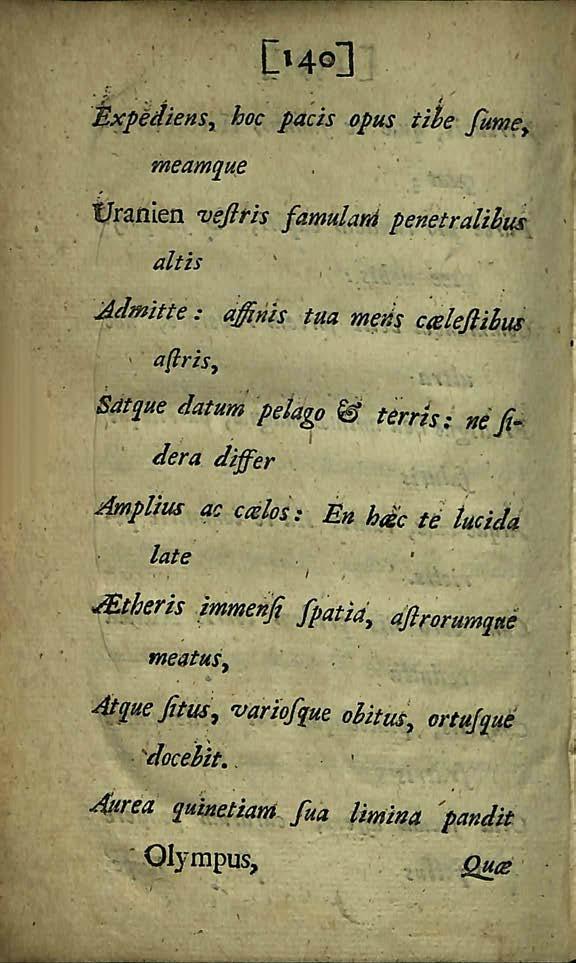 [140]
Expediens, hoc pacis opus tibe ſume,
meamque
Uranien veſtris famulam penetralibus
altis
Admitte: affinis tua mens cæleſtibus
aſtris,
Satque datum pelago & terris: ne ſi-
dera differ
Amplius ac cælos: En hæc te lucida
late
Ætheris immenſi ſpatia, aſtrorumque
meatus,
Atque ſitus, varioſque obitus, ortuſque
docebit.
Aurea quinetiam ſua limina pandit
Olympus,
Quæ